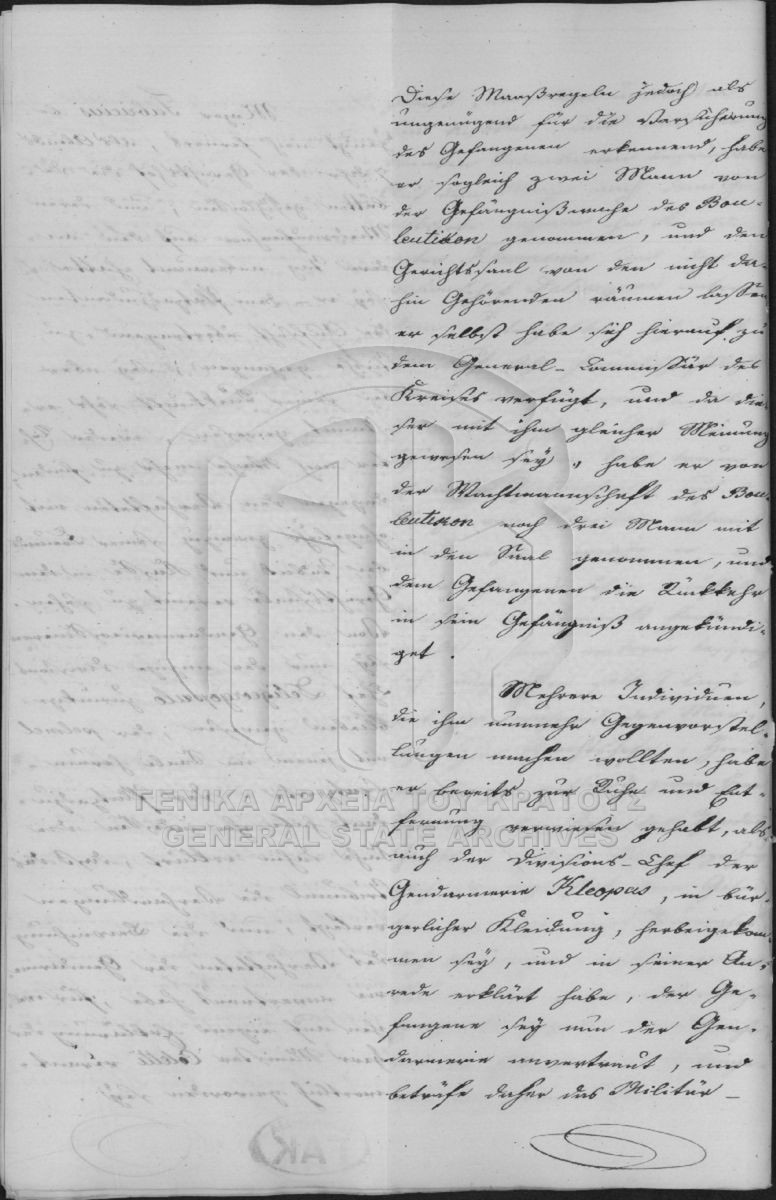 Diese Maaßregeln jedoch als
ungenügend für die Versicherung
des Gefangenen erkennend, habe
er sogleich zwei Mann von
der Gefängnißwache des Bou-
leutikon genommen, und den
Gerichtssaal von den nicht da-
hin Gehörenden räumen lassen
er selbst habe sich hierauf zu
dem General-Commissär des
Kreises verfügt, und da die-
ser mit ihm gleicher Meinung
gewesen sey, habe er von
der Wachtmannschaft des Bou-
leutikon noch drei Mann mit
in den Saal genommen, und
dem Gefangenen die Rückkehr
in sein Gefängniß angekündi-
get.
Mehrere Individuen,
die ihm nunmehr Gegenvorstel-
lungen machen wollten, habe
er bereits zur Ruhe und Ent-
fernung verwiesen gehabt, als
auch der Divisions-Chef der
Gendarmerie Kleopas, in bür-
gerlicher Kleidung, herbeigekom-
men sey, und in seiner An-
rede erklärt habe, der Ge-
fangene sey nun der Gen-
darmerie anvertraut, und
beträfe daher das Militär-
ΓΕΝΙΚΑ ΑΡΧΕΙΑ ΤΟΥ ΚΡΑΤΟΥΣ
GENERAL STATE ARCHIVES